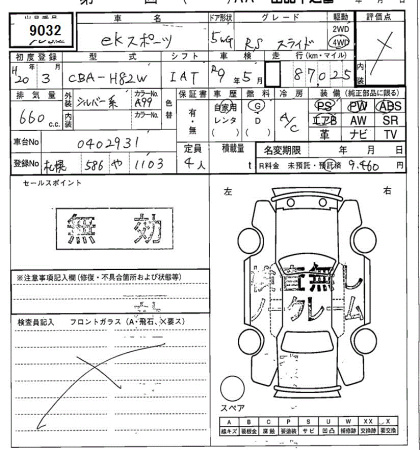 9032
車名
ドア形状
グレード
駆動
評価点
ekスポーツ
5WG
RS スライド
2WD
4WD
内装
初度登録
型式
シフト
冷房
車検
走行(km・マイル)
H20年3月
CBA-H82W
IAT
R9年5月
87,025
排気量
外装
シルバー系
カラーNo
A99
内装
カラーNo
色替
保証書
有・無
車歴
自家用
レンタ
燃料
G
D
冷房
A/C
装備(純正部品に限る)
PS PW ABS
エアB AW SR
革 ナビ TV
660c.c.
車台No
0402931
定員
4人
積載量
t
名変期限
年 月 日
登録No
札幌 586 や 1103
R料金 未預託・預託済 9,460円
セールスポイント
無効
左
右
※注意事項記入欄(修復・不具合箇所および状態等)
検査員記入 フロントガラス(A・飛石、×要ス)
査無し
ノークレーム
スペア
A B C P S U W X XX
線キズ 鈑金 腐触 要塗装 サビ 凹凸 補修跡 交換跡 要交換